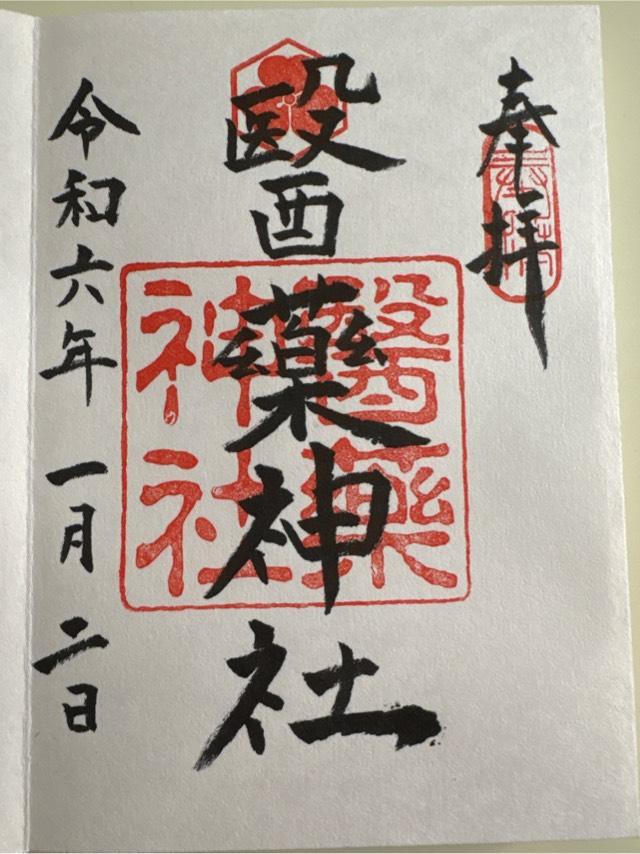 奉拝
醫藥神社
醫藥神社
令和六年一月二日